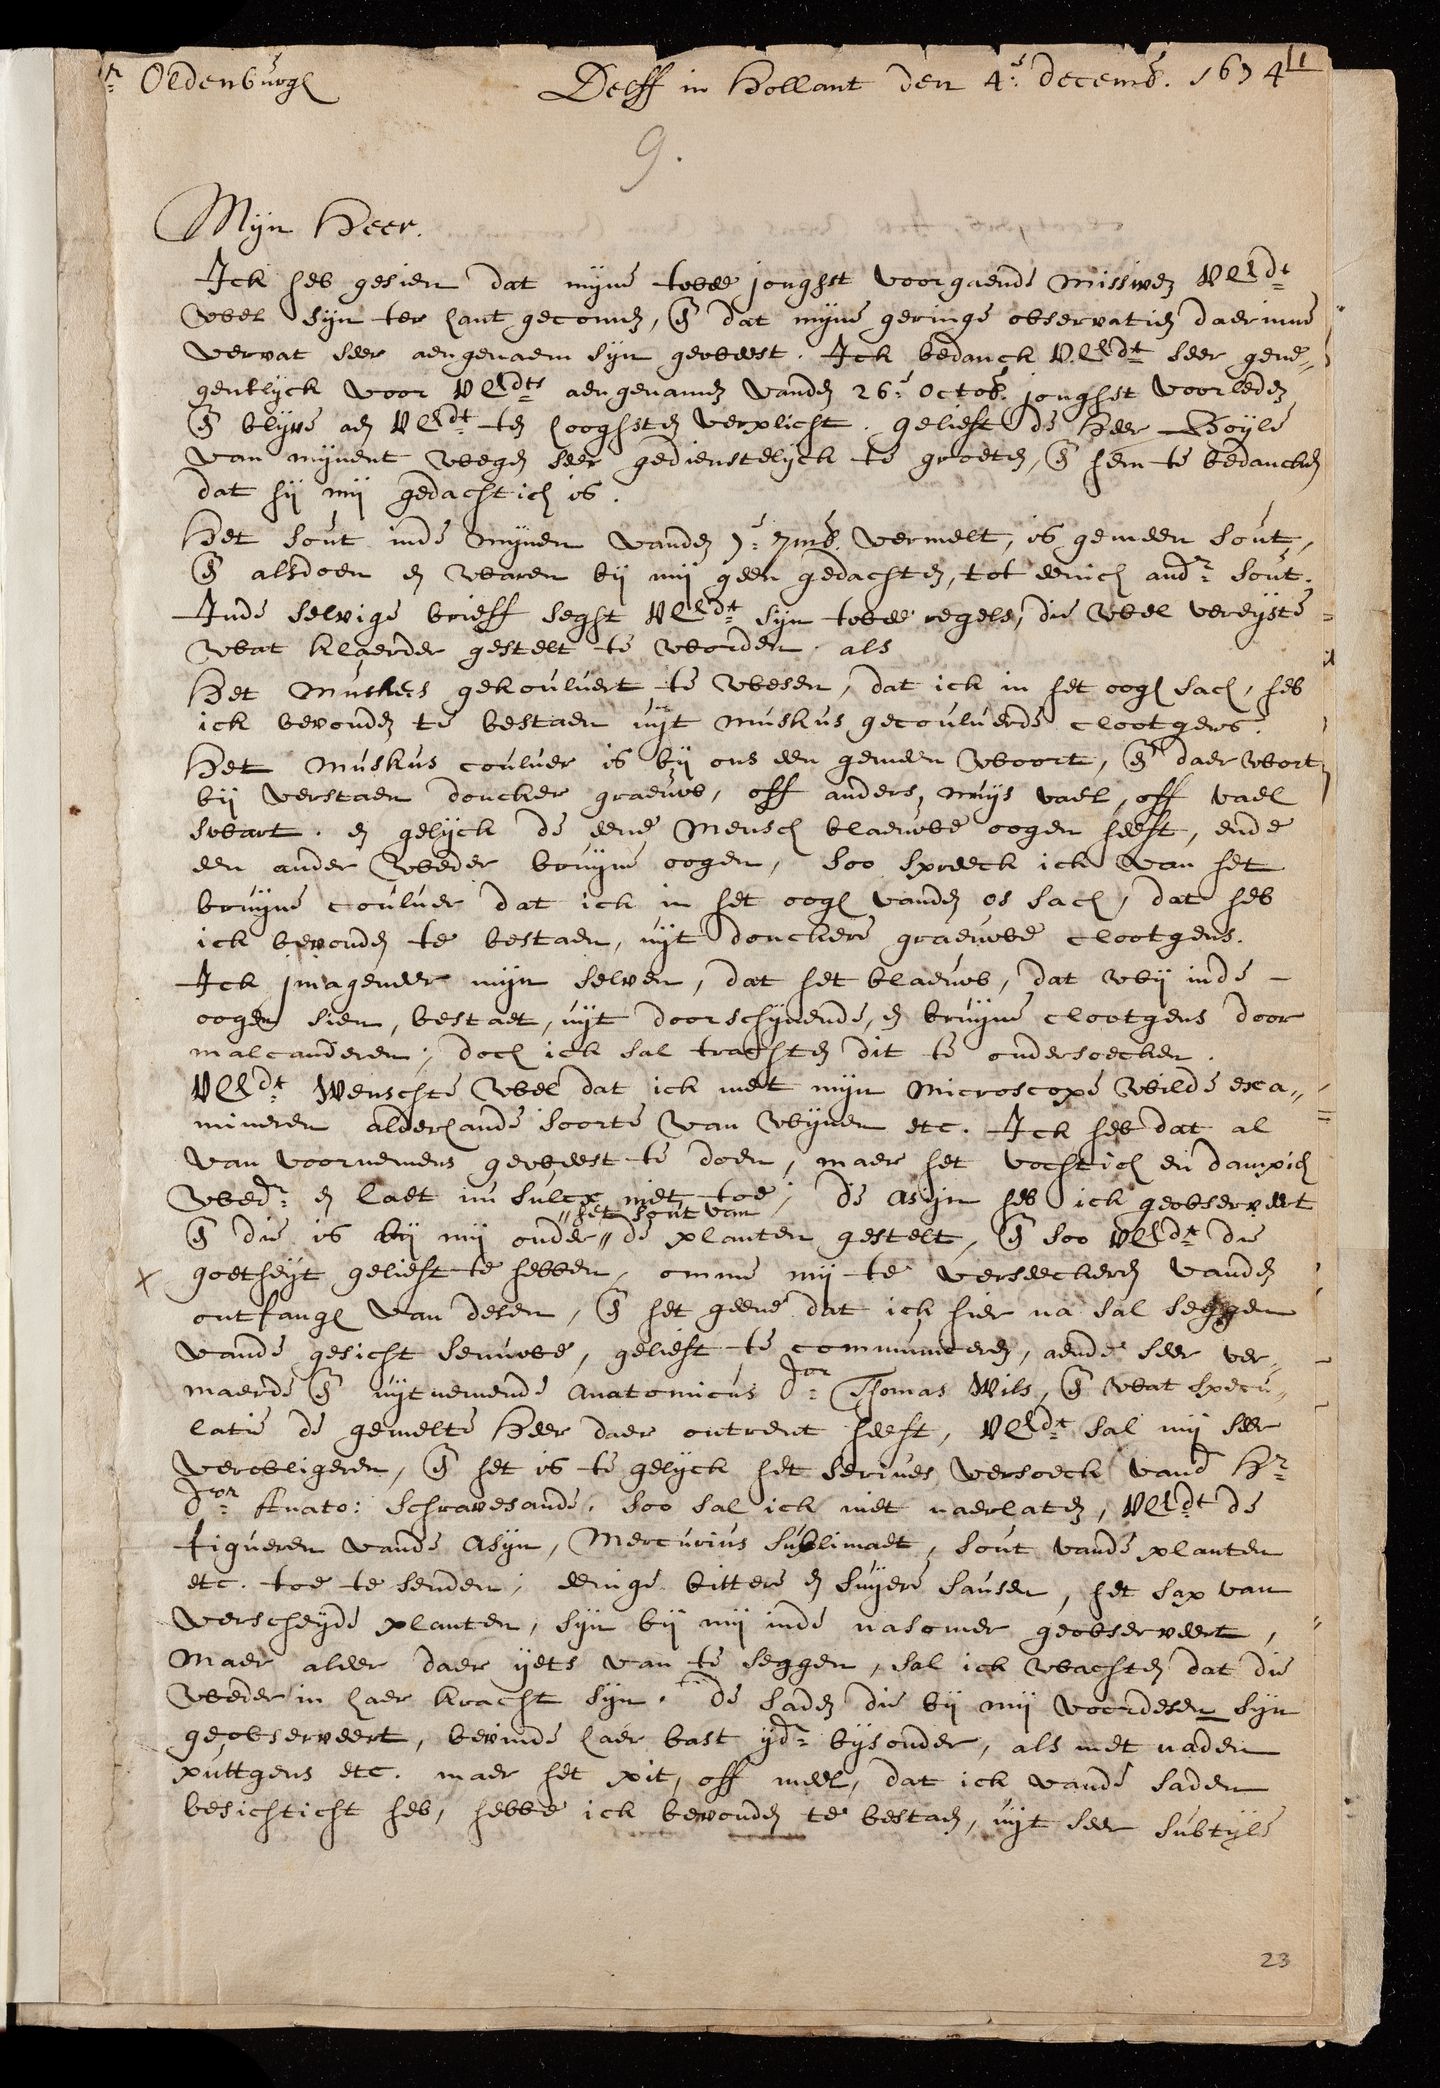 r. Oldenburgh Delff in Hollant den 4e. decemb. 1674
11
9.
Mijn Heer.
Ick heb gesien dat mijne twee jonghst voorgaende missiven UEdt
wel sijn ter hant gecomen, en dat mijne geringe observatien daerinne
vervat seer aengenaem sijn geweest. Ick bedanck UEdt seer gene,,
gentlijck voor UEdts aengenamen vanden 26e. Octob. jonghst voorleden
en blijve aen UEdt ten hooghsten verplicht. gelieft de Heer Boijle
van mijnent wegen seer gedienstelijck te groeten, en hem te bedancken
dat hij mij gedachtich is.
Het sout inde mijnen vanden 7e. 7mb. vermelt, is gemeen sout,
en alsdoen en waren bij mij geen gedachten, tot eenich andr sout.
Inde selvige brieff seght UEdt sijn twee regels, die wel vereijste
wat klaerder gestelt te worden. als
Het muskus gekouluert te wesen, dat ick in het oogh sach, heb
ick bevonden te bestaen uijt muskus gecouluerde clootgens.
Het muskus couluer is bij ons een gemeen woort, en daer wort
bij verstaen doncker graeuw, off anders, muijs vael, off vael
swart. en gelijck de eene mensch blaeuwe oogen heeft, ende
een ander weder bruijne oogen, soo spreeck ick van het
bruijne couluer dat ick in het oogh vanden os sach, dat heb
ick bevonden te bestaen, uijt donckere graeuwe clootgens.
Ick jmageneer mijn selven, dat het blaeuw, dat wij inde
oogen sien, bestaet, uijt doorschijnende, en bruijne clootgens door
malcanderen; doch ick sal trachten dit te ondersoecken.
UEdt Wenschte wel dat ick met mijn Microscope wilde exa,,
mineren alderhande soorte van wijnen etc. Ick heb dat al
van voornemens geweest te doen, maer het vochtich en dampich
wedr en laet nu sulcx niet toe; de asijn heb ick geobserveert
,,het sout van
en die is bij mij onder ,, de planten gestelt, en soo UEdt die
x goetheijt gelieft te hebben, omme mij te verseeckeren vanden
ontfangh van desen, en het geene dat ick hier na sal seggen
vande gesicht senuwe, gelieft te communiceren, aende seer ver,,
maerde en uijtnemende Anatomicus dor Thomas Wils, en wat specu,,
latie de gemelte Heer daer ontrent heeft, UEdt sal mij seer
verobligeren, en het is te gelijck het serieus versoeck vand Hr
dor Anato: Schravesande. soo sal ick niet naerlaten, UEdt de
figueren vande asijn, Mercurius sublimaet, sout vande planten
etc. toe te senden; eenige bittere en suijere sausen, het sap van
verscheijde planten, sijn bij mij inde nasomer geobserveert,
maer alder daer ijets van te seggen, sal ick wachten dat die
weder in haer kracht sijn. de saden die bij mij voordesen sijn
geobserveert, bevinde haer bast ijdr bijsonder, als met naden
puttgens etc. maer het pit, off meel, dat ick vande saden
besichticht heb, hebbe ick bevonden te bestaen, uijt seer subtijle
23